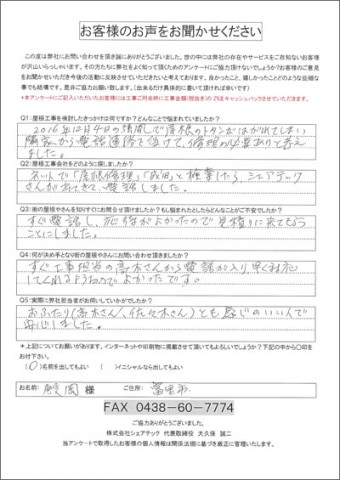 お客様のお声をお聞かせください
この度は弊社にお問い合わせを頂き誠にありがとうございました。世の中には弊社の存在やサービスをご存知ないお客様
が沢山いらっしゃいます。その方たちに弊社をよく知って頂くためのアンケートにご協力頂けないでしょうか?お客様のご意見
をお聞かせいただき今後の活動に反映させていただきたいと考えております。良かったこと、嬉しかったことどのような些細な
事でも結構です。是非ご協力お願い致します。(出来るだけ具体的に書いて頂ければ幸いです)
*本アンケートにご記入いただいたお客様には工事ご用命時に工事金額(税抜き)の2%をキャッシュバックさせていただきます。
Q1:屋根工事を検討したきっかけは何ですか?どんなことで悩まれていましたか?
2016年12月4日の強風で屋根のトタンがはがれてしまい
隣家から電話連絡を受けて、修理の必要ありと考え
ました。
Q2:屋根工事会社をどのように探しましたか?
ネットで「屋根修理」「成田」と検索したら、シェアテック
さんが出てきて、電話しました。
Q3:街の屋根やさんを知りすぐにお問合せ頂けましたか?もし悩まれたとしたらどんなことがご不安でしたか?
すぐ電話し、応待がよかったので見積りに来てもらう
ことにしました。
Q4:何が決め手となり街の屋根やさんにお問い合わせ頂きましたか?
すぐ工事担当の高木さんから電話が入り、早く対応
してくれるようなのでよかったです。
Q5:実際に弊社担当者がお伺いしていかがでしたか?
おふたり(高木さん、佐々木さん)とも感じのいい人で
安心しました。
*上記についてお願いがあります。インターネットや印刷物に掲載させて頂いてもよろしいでしょうか?下記の中から〇印を
お付け下さい。
(〇)名前を出してもよい ( )イニシャルなら出してもよい
お名前: 様 ご住所: 富里市
FAX 0438-60-7774
ご協力ありがとうございました。
株式会社シェアテック 代表取締役 大久保 誠二
当アンケートで取得したお客様の個人情報は関係法規に基づき厳正に管理いたします。